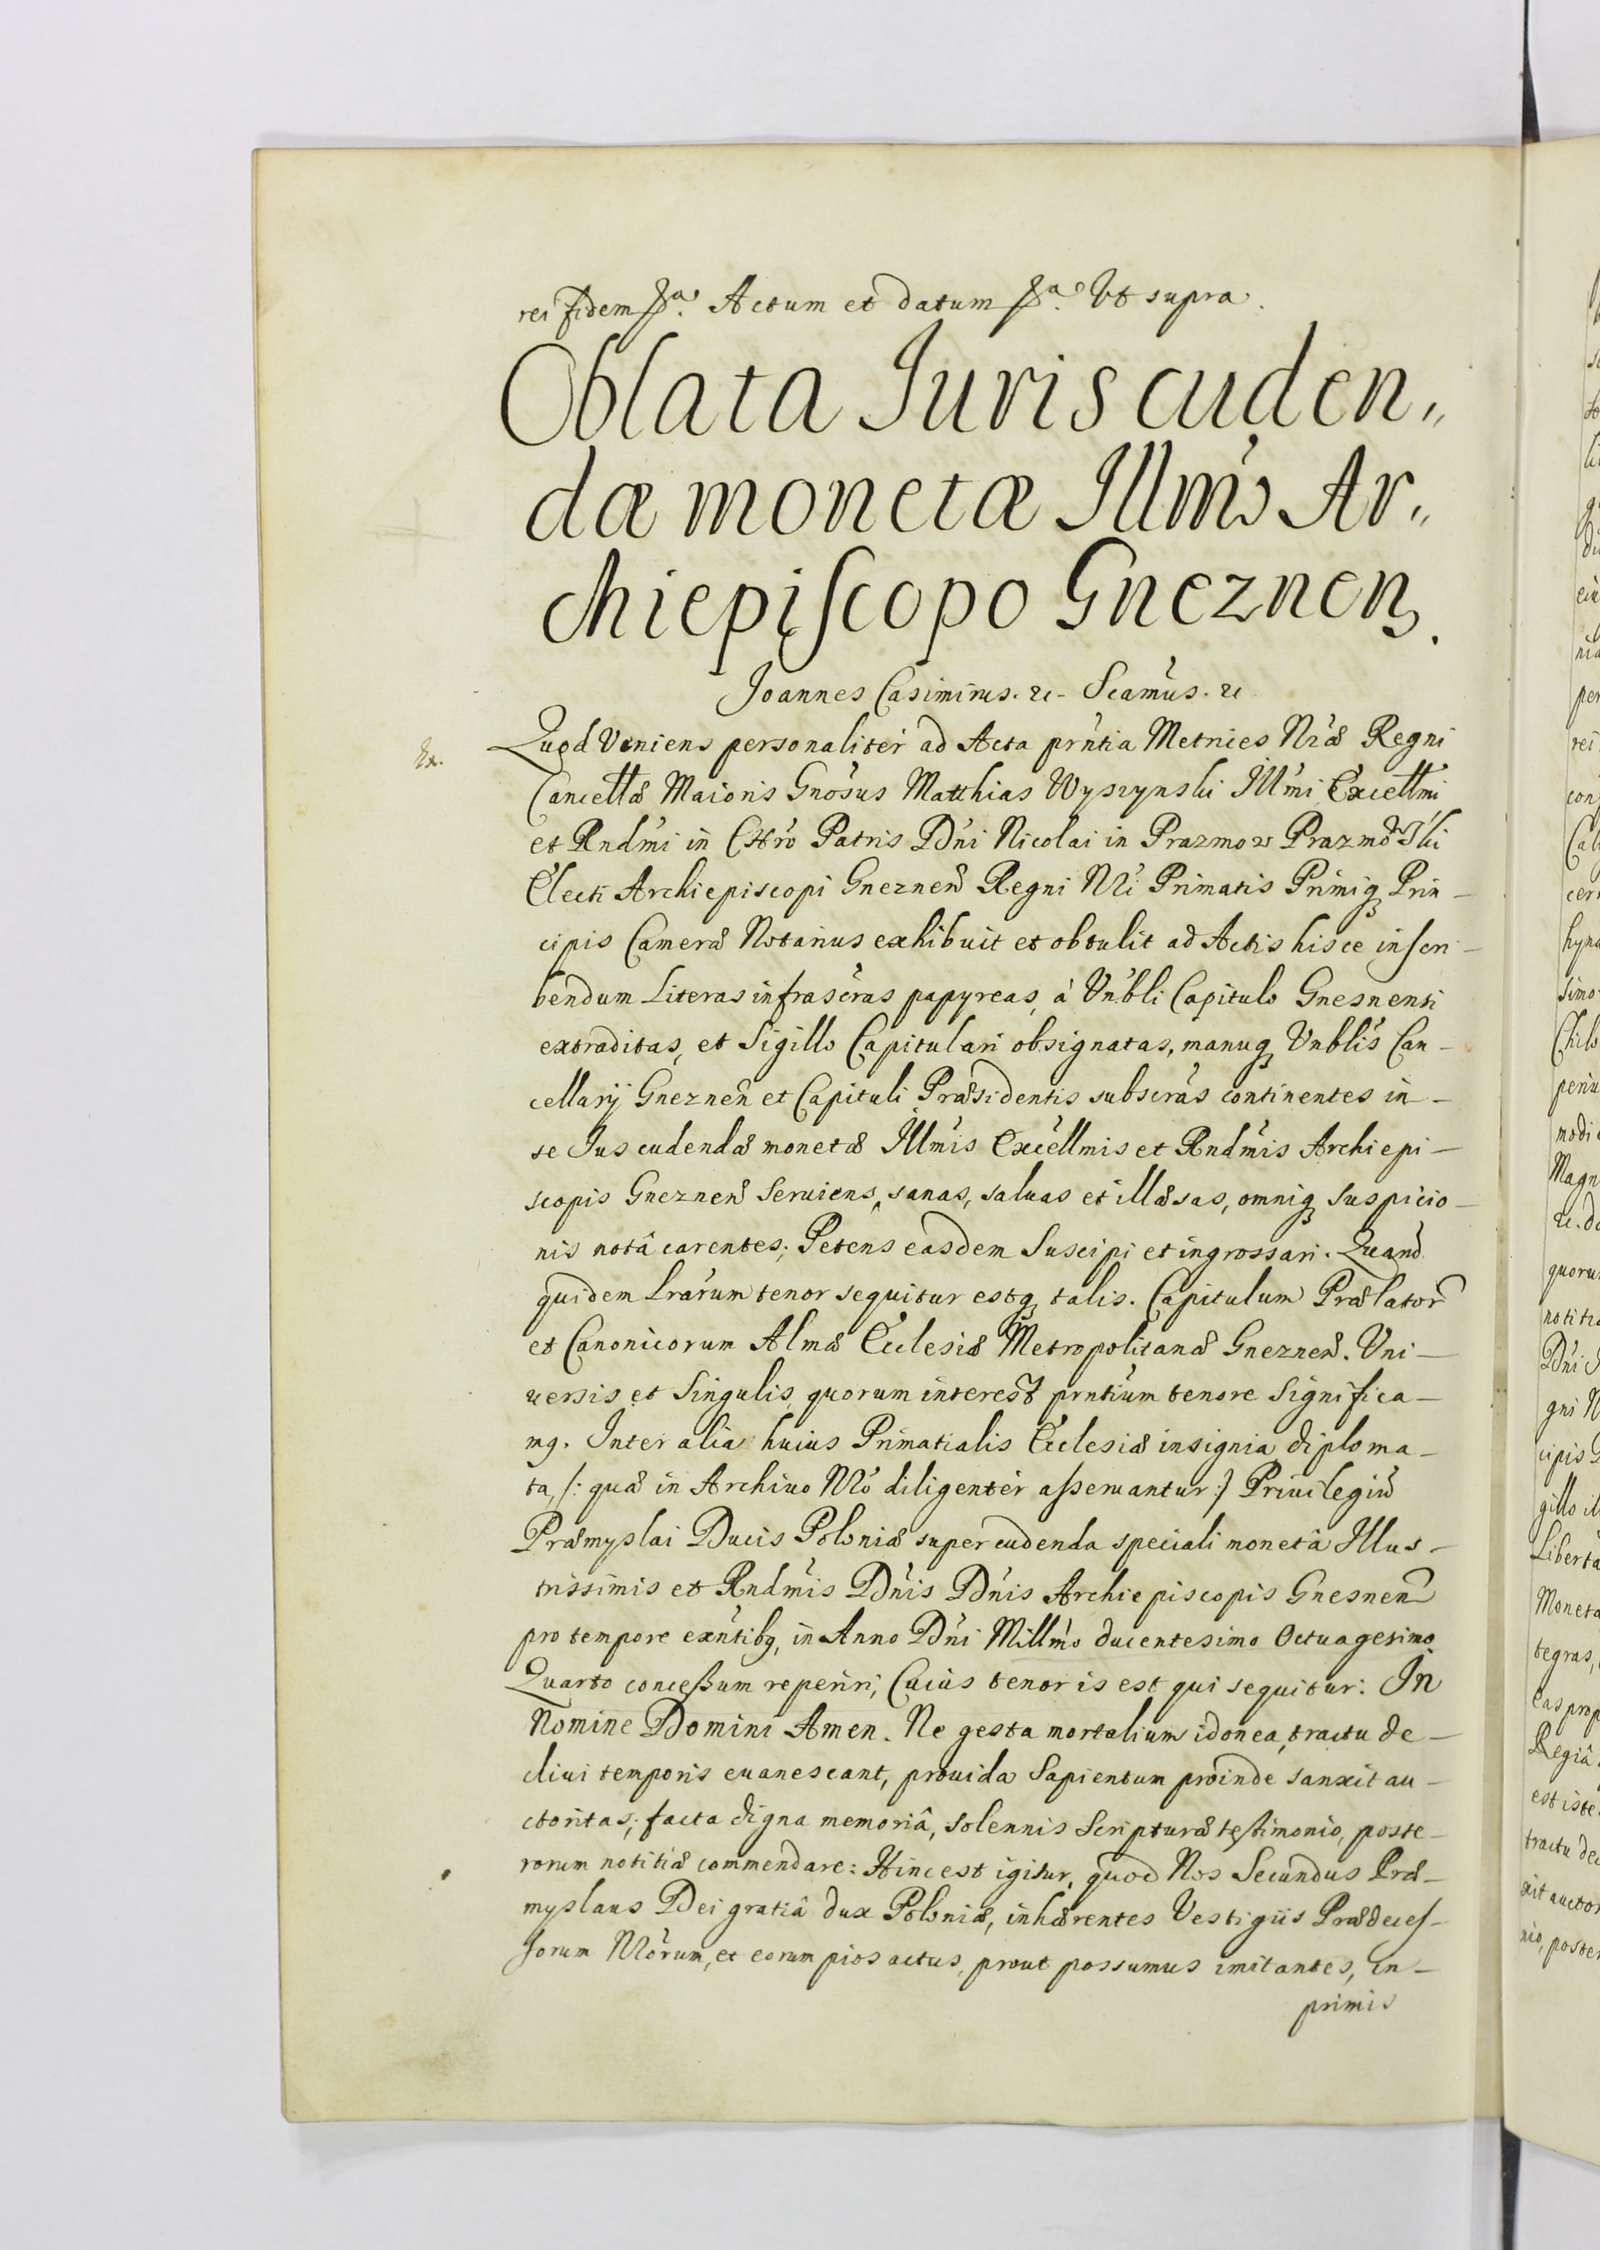 rei fidem &a. Actum et datum &a. Vt supra.
Oblata Juris cuden„
dæ monetæ Illm̃o Ar„
chiepiscopo Gneznen.
Joannes Casimirus. &c - Scam̃us. &c
Ex.
Quod Veniens personaliter ad Acta prñtia Metrices Nr̃æ Regni
Cancell̃æ Maioris Gnõsus Matthias Wyszynski Ill̃mi Excell̃mi
et Rnd̃mi in Chr̃o Patris Dñi Nicolai in Prazmow Prazmowski
Electi Archiepiscopi Gneznen̄ Regni Nr̃i Primatis Primiq; Prin-
cipis Cameræ Notarius exhibuit et obtulit ad Actis hisce inscri-
bendum Literas infrascr̃as papyreas, à Vn̄bli Capitulo Gnesnensi
extraditas, et Sigillo Capitulari obsignatas, manuq; Vnblĩs Can-
cellarij Gneznen̄ et Capituli Præsidentis subscrãs continentes in-
se Jus cudendæ monetæ Ill̃mis Excell̃mis et Rnd̃mis Archiepi-
scopis Gneznen̄ Seruiens, sanas, saluas et illæsas, omniq; suspicio-
nis notâ carentes; Petens easdem Suscipi et ingrossari. Quarũ
quidem Lrãrum tenor sequitur estq; talis. Capitulum Prælator̃
et Canonicorum Almæ Ecclesiæ Metropolitanæ Gneznen̄. Vni-
uersis et Singulis, quorum interest prñtium tenore Significa-
mg. Inter alia huius Primatialis Ecclesiæ insignia diploma-
ta, /: quæ in Archiuo Nr̃o diligenter asseruantur :/ Priuilegiũ
Præmyslai Ducis Poloniæ super cudenda speciali monetâ Illus-
trissimis et Rnd̃mis Dñis Dñis Archiepiscopis Gnesnen̄
pro tempore exñtibg, in Anno Dñi Millm̃o ducentesimo Octuagesimo
Quarto concessum reperiri; Cuius tenor is est qui sequitur: In
Nomine Domini Amen. Ne gesta mortalium idonea, tractu de-
cliui temporis euanescant, prouida Sapientum proinde sanxit au-
ctoritas; facta digna memoriâ, solennis Scripturæ testimonio, poste-
rorum notitiæ commendare: Hinc est igitur, quod Nos Secundus Præ-
myslaus Dei gratiâ dux Poloniæ, inhærentes Vestigiis Prædeces-
sorum Nr̃orum, et eorum pios actus, prout possumus imitantes, in-
primis